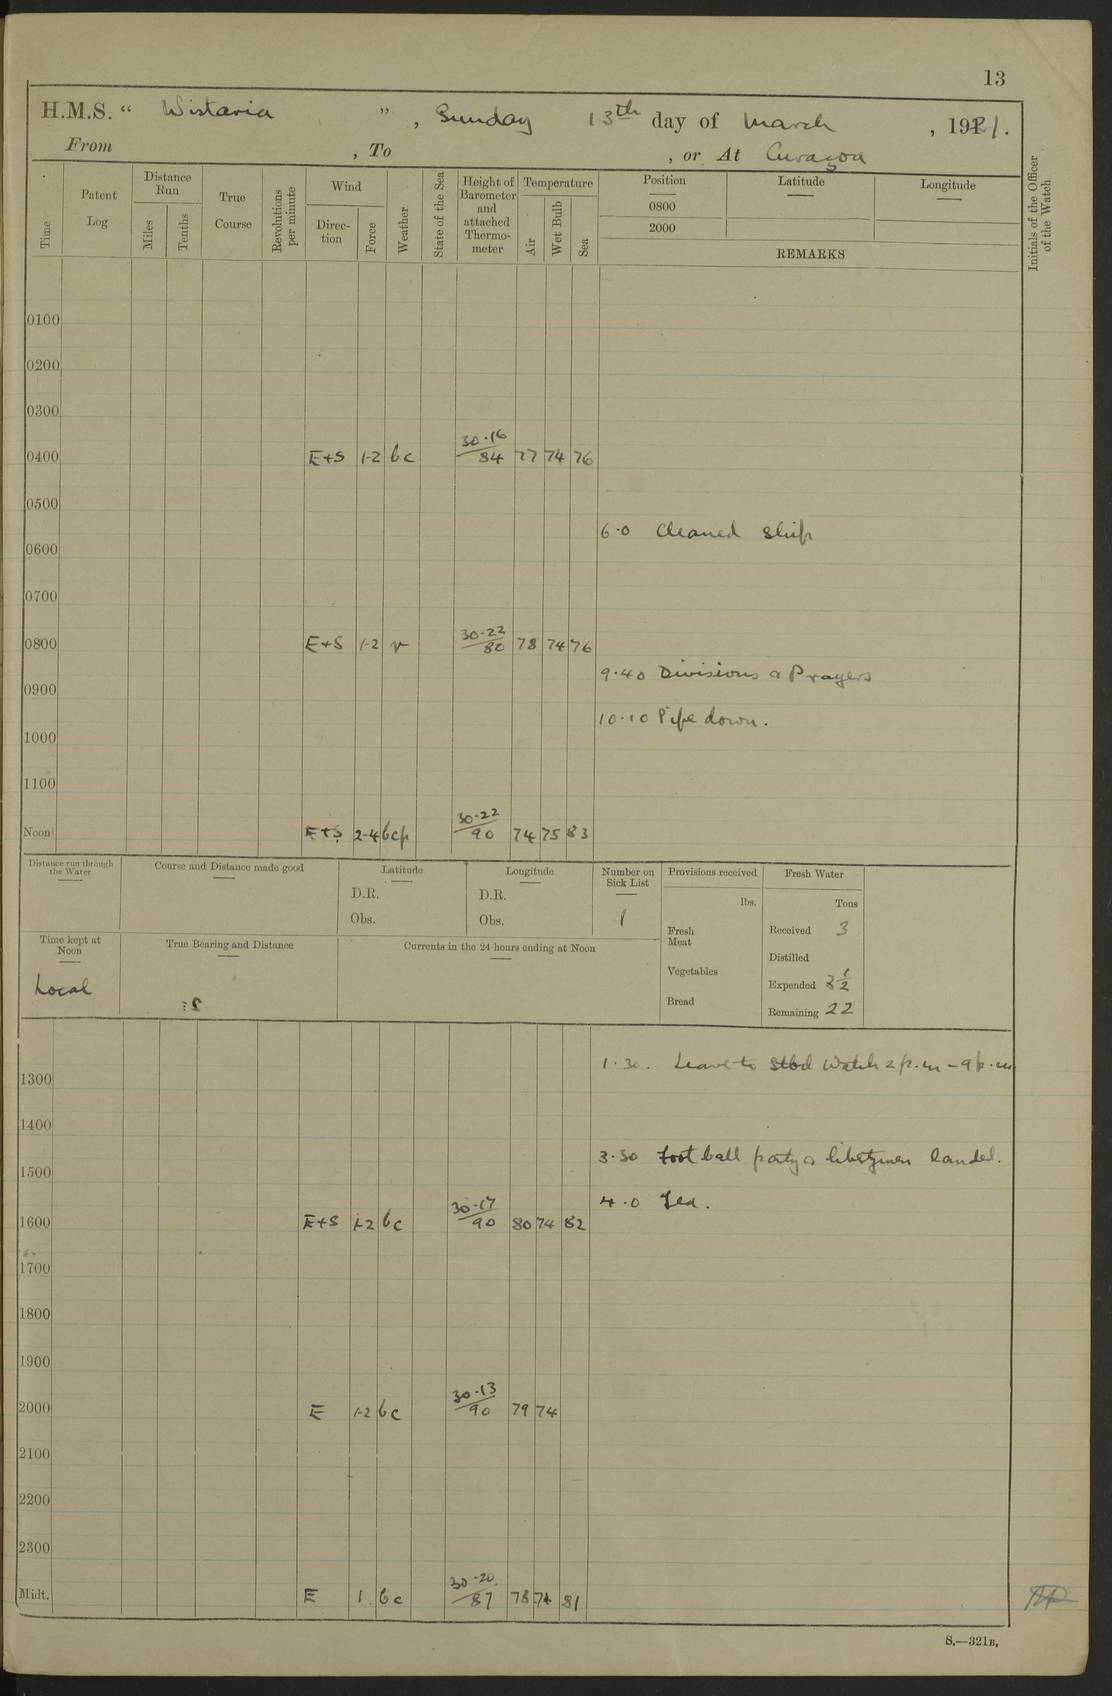 13
H.M.S. “ Wistaria ” , Sunday 13th day of March , 1921.
From , To , or At Curaçoa
Time
Patent Log
Distance Run
Miles
Tenths
True Course
Revolutions per minute
Wind
Direction
Force
Weather
State of the Sea
Height of Barometer and attached Thermometer
Temperature
Air
Wet Bulb
Sea
Position Latitude Longitude
0800
2000
REMARKS
Initials of the Officer of the Watch
0100
0200
0300
0400 E+S 1-2 bc 30·16/84 77 74 76
0500
6·0 Cleaned Ship
0600
0700
0800 E+S 1-2 v 30·22/80 78 74 76
9·40 Divisions & Prayers
0900
10·10 Pipe down.
1000
1100
Noon E+S 2-4 bcp 30·22/90 74 75 83
Distance run through the Water
Course and Distance made good
Latitude
D.R.
Obs.
Longitude
D.R.
Obs.
Number on Sick List
1
Provisions received
lbs.
Fresh Meat
Vegetables
Bread
Fresh Water
Tons
Received 3
Distilled
Expended 3½
Remaining 22
Time kept at Noon
Local
True Bearing and Distance
Currents in the 24 hours ending at Noon
1·30. Leave to Stbd Watch 2 p.m – 9 p.m
1300
1400
3·30 Foot ball party & libertymen landed.
1500
4·0 Tea.
1600 E+S 1-2 bc 30·17/90 80 74 82
1700
1800
1900
2000 E 1-2 bc 30·13/90 79 74
2100
2200
2300
Midt. E 1 bc 30·20/87 78 74 81
S.—321B.